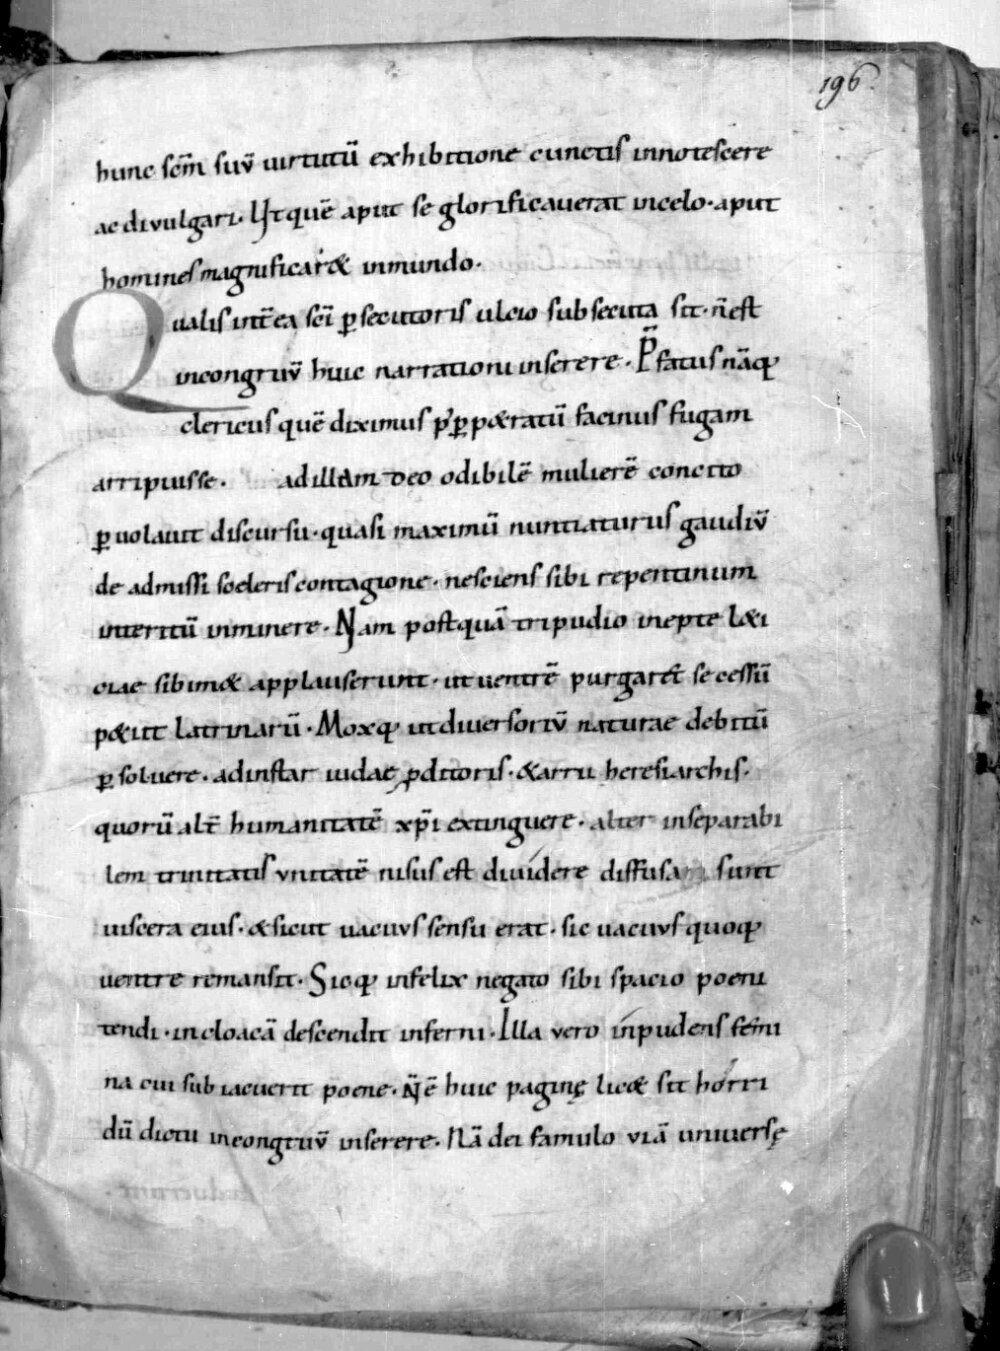 196.
hunc scm̄ suū uirtutū exhibitione cunctis innotescere
ac divulgari. Ut quē aput se glorificauerat in celo. aput
homines magnificar& in mundo.
Qualis int̄ ea sc̄i p̱secutoris ulcio subsecuta sit. n̄ est
incongruū huic narrationi inserere. P̄fatus nāq;
clericus quē diximus p' p̱p&ratū facinus fugam
arripuisse. ad illam deo odibilē mulierē concito
p̱uolauit discursu. quasi maximū nuntiaturus gaudiū
de admissi sceleris contagione. nesciens sibi repentinum
interitū inminere. Nam postquā tripudio inepte l&i
ciae sibim& applauserunt. ut uentrē purgar& secessū
p&iit latrinarū. Moxq; ut diuersoriū naturae debitū
p̱soluere. ad instar iudae ꝓditoris. & arrii heresiarchis.
quorū alt̄ humanitatē xp̄i extinguere. alter inseparabi
lem trinitatis unitatē nisus est diuidere diffusa sunt
uiscera eius. & sicut uacuus sensu erat. sic uacuus quoq;
uentre remansit. Sicq; infelix negato sibi spacio poeni
tendi. in cloacā descendit inferni. Illa vero inpudens femi
na cui subiacuerit poene. N̄ ē huic paginę lic& sit horri
dū dictu incongruū inserere. Nā dei famulo viā uniuersę